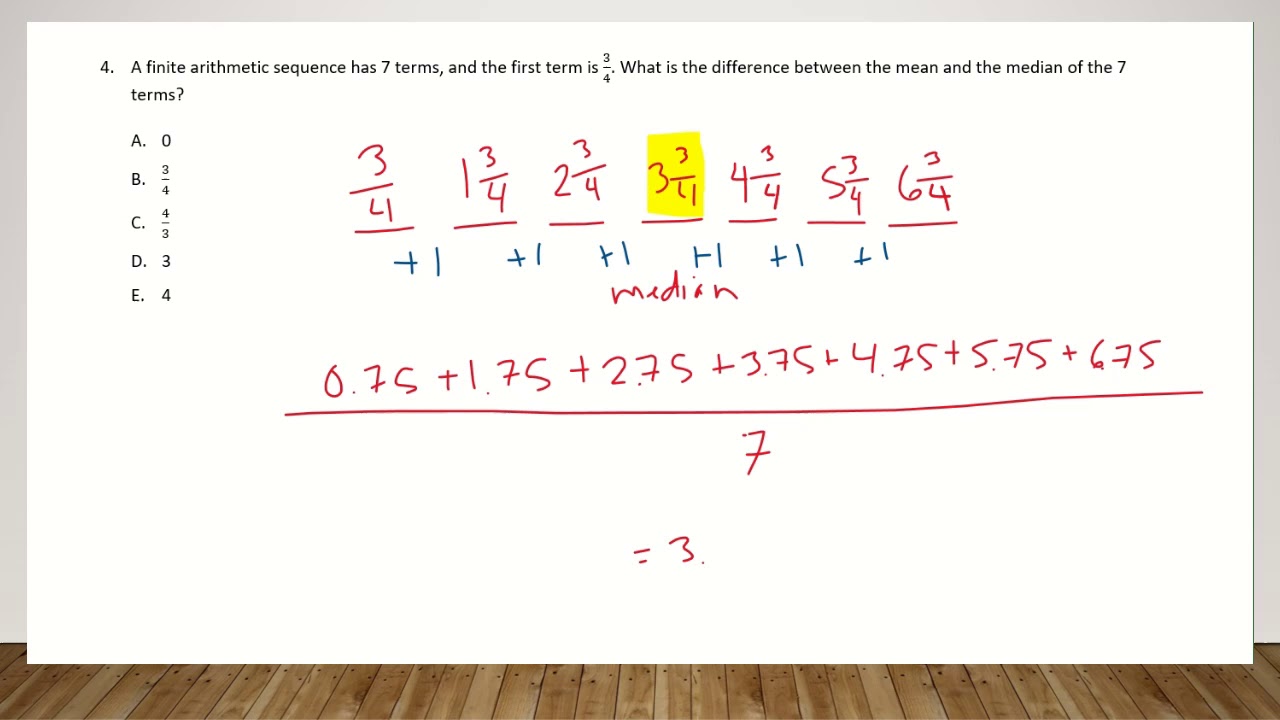 4. A finite arithmetic sequence has 7 terms, and the first term is 3/4. What is the difference between the mean and the median of the 7
terms?
A. 0
B. 3/4
C. 4/3
D. 3
E. 4
3/4 1 3/4 2 3/4 3 3/4 4 3/4 5 3/4 6 3/4
+1 +1 +1 +1 +1 +1
median
0.75 +1.75 +2.75 +3.75+ 4.75+5.75 + 6.75
7
= 3.